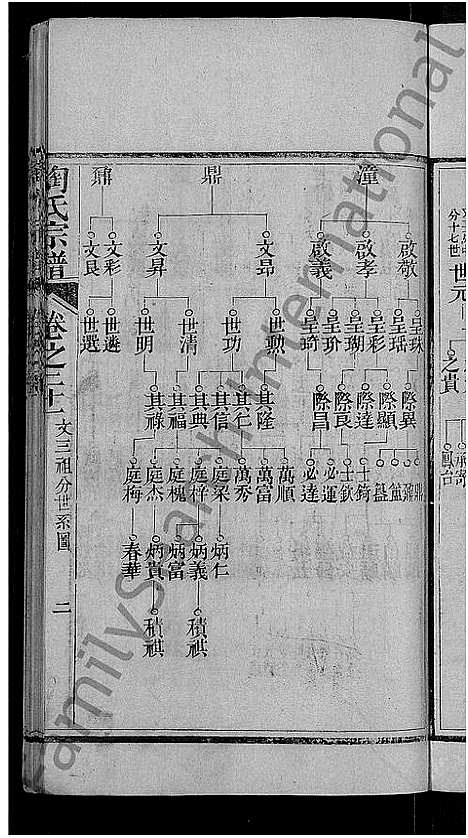 分十七世
世元
之貴
鳳台
潼
鼎
鼐
啟敬
啟孝
啟義
文昂
文昇
文彩
文良
呈珠
呈瑤
呈彩
呈瑚
呈玠
呈琦
世勲
世功
世清
世明
世遴
世選
際異
際顯
際達
際良
際昌
其隆
其仁
其信
其典
其福
其祿
士錡
士欽
必運
必達
萬順
萬富
萬秀
庭梁
庭梓
庭槐
庭杰
庭梅
炳仁
炳義
炳富
炳貴
春華
積祺
積祺
陶氏宗譜
卷之二十
文三祖分世系圖
二
FamilySearch International